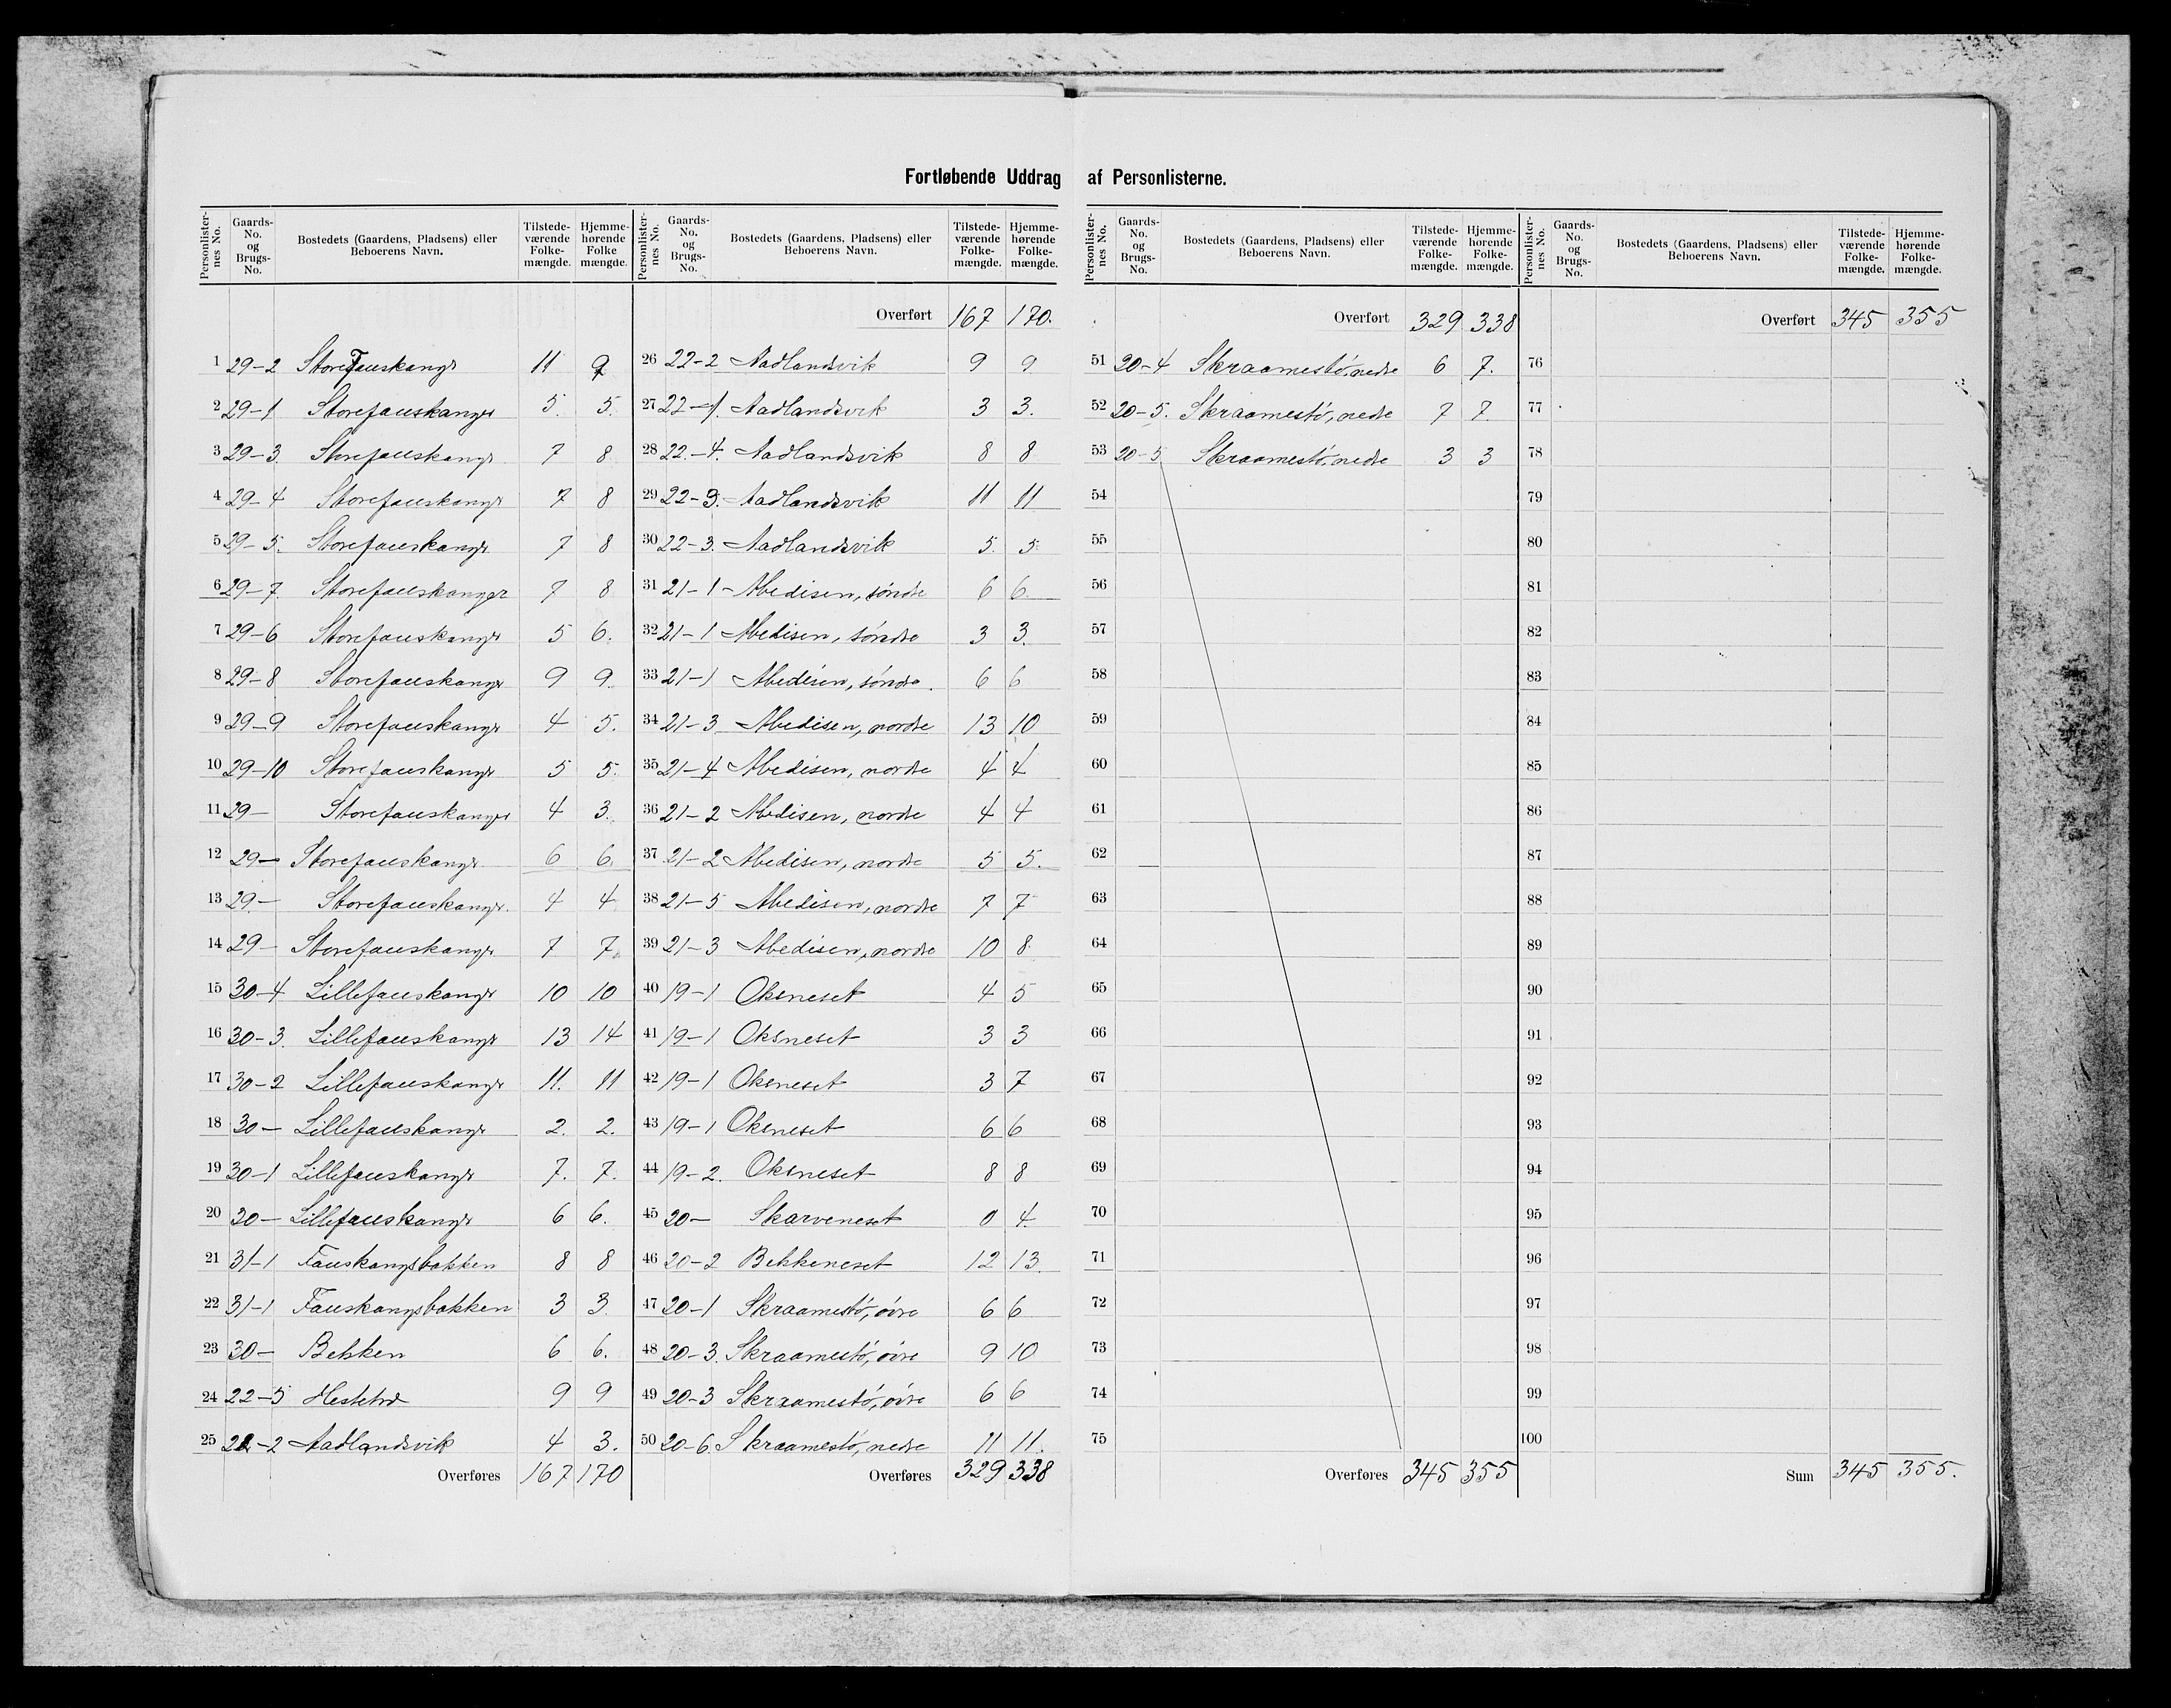 Fortløbende Uddrag af Personlisterne.
Personlister-nes No. Gaards-No. og Brugs-No. Bostedets (Gaardens, Pladsens) eller Beboerens Navn. Tilstede-værende Folke-mængde. Hjemme-hørende Folke mængde.
1 29-2 StoreFauskangr 11 9
2 29-1 Storefauskanger 5. 5.
3 29-3. Storefauskangr 7 8
4 29-4 Storefauskangr 7 8
5 29-5. Storefauskangr 7 8
6 29-7. Storefauskanger 7 8
7 29-6 Storefauskangr 5 6.
8 29-8 Storefauskangr 9 9.
9 29-9 Storefauskangr 4 5.
10 29-10 Storefauskangr 5 5.
11 29- Storefauskanger 4 3.
12 29- Storefauskangr 6 6.
13 29- Storefauskangr. 4 4
14 29- Storefauskangr 7 7.
15 30-4 Lillefauskangr 10 10
16 30-3. Lillefauskangr 13 14
17 30-2 Lillefauskangr 11. 11
18 30- Lillefauskangr 2. 2.
19 30-1 Lillefauskangr 7. 7.
20 30- Lillefauskangr 6 6.
21 31-1 Fauskangsbakken 8 8
22 31-1 Fauskangsbakken 3 3.
23 30- Bekken 6 6.
24 22-5 Hestetræ 9 9
25 22-2 Aadlandsvik 4 3.
Overføres 167 170
Personlister-nes No. Gaards-No. og Brugs-No. Bostedets (Gaardens, Pladsens) eller Beboerens Navn. Tilstede-værende Folke-mængde. Hjemme-hørende Folke-mængde.
Overført 167 170.
26 22-2 Aadlandsvik 9 9
27 22-1. Aadlandsvik 3 3.
28 22-4. Aadlandsvik 8 8
29 22-3. Aadlandsvik 11 11
30 22-3. Aadlandsvik 5. 5.
31 21-1 Abedisen, søndre 6 6.
32 21-1 Abedisen, søndre 3 3.
33 21-1 Abedisen, søndre. 6 6
34 21-3 Abedisen, nordre 13 10
35 21-4 Abedisen, nordre 4 4
36 21-2 Abedisen, nordre 4 4
37 21-2 Abedisen, nordre 5 5.
38 21-5 Abedisen, nordre 7 7
39 21-3 Abedisen, nordre 10 8.
40 19-1 Oksneset 4 5
41 19-1 Oksneset 3 3
42 19-1 Oksneset 3 7
43 19-1 Oksneset 6 6
44 19-2. Oksneset 8 8
45 20- Skarveneset 0 4.
46 20-2 Bekkeneset 12 13.
47 20-1 Skraamestø, øvre 6 6
48 20-3. Skraamestø, øvre 9 10
49 20-3 Skraamestø, øvre 6 6
50 20-6. Skraamestø, nedre 11 11.
Overføres 329 338
Personlister-nes No. Gaards-No. og Brugs-No. Bostedets (Gaardens, Pladsens) eller Beboerens Navn. Tilstede-værende Folke-mængde. Hjemme-hørende Folke-mængde.
Overført 329 338
51 20-4 Skraamestø, nedre 6 7.
52 20-5. Skraamestø, nedre 7 7.
53 20-5 Skraamestø, nedre 3 3
54
55
56
57
58
59
60
61
62
63
64
65
66
67
68
69
70
71
72
73
74
75
Overføres 345 355
Personlister-nes No. Gaards-No. og Brugs-No. Bostedets (Gaardens, Pladsens) eller Beboerens Navn. Tilstede-værende Folke-mængde. Hjemme-hørende Folke-mængde.
Overført 345 355
76
77
78
79
80
81
82
83
84
85
86
87
88
89
90
91
92
93
94
95
96
97
98
99
100
Sum 345 355.